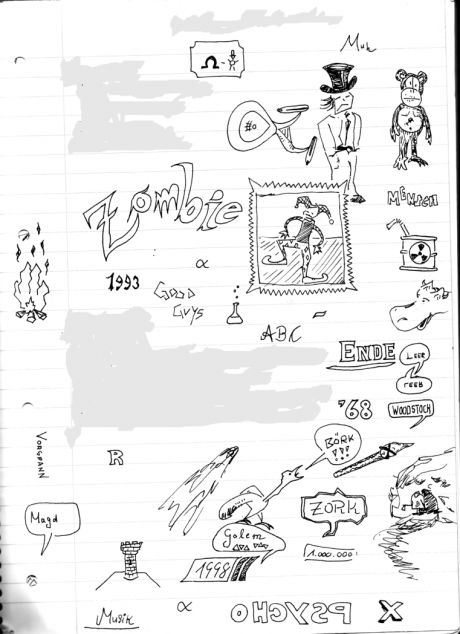 Ω
Muh
#0
Zombie
MENSCH
1993
α
GOOD
GUYS
ABC
ENDE
LEER
LEER
'68
WOODSTOCK
VORSPANN
R
BÖRK
!!!
Magd
ZORK
Golem
1.000.000.
1998
Musik
α
PSYCHO
X